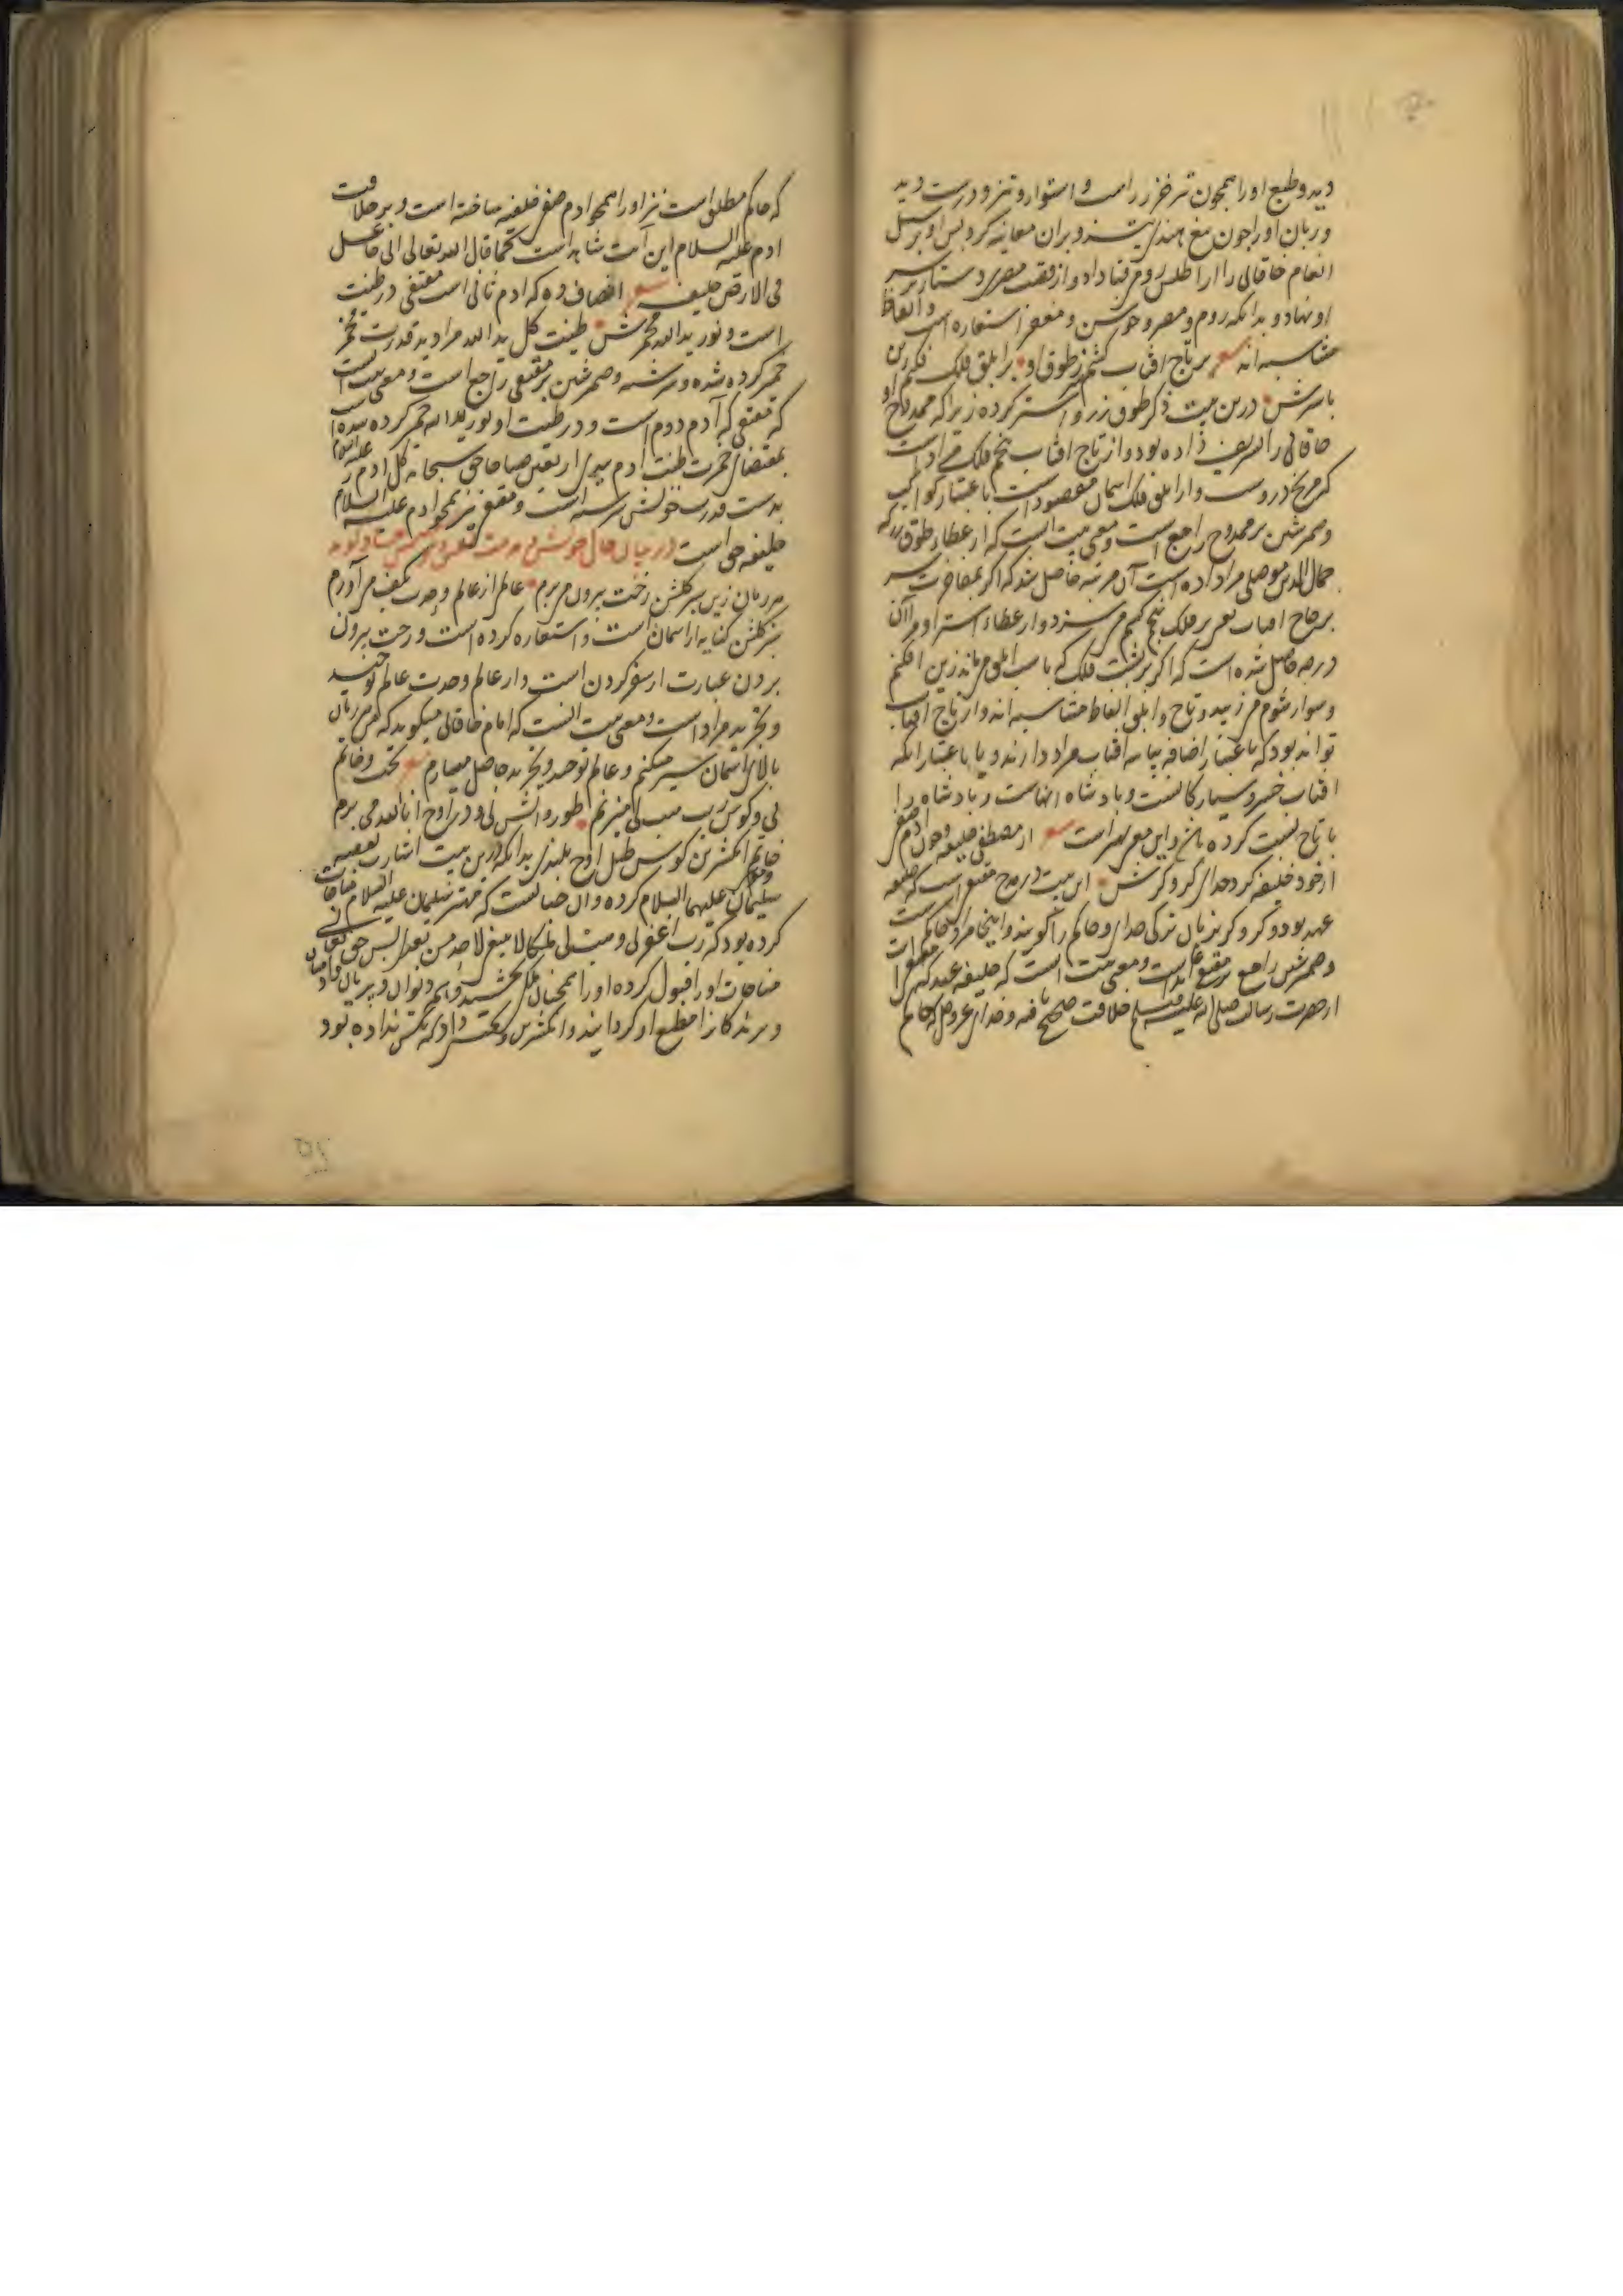 دید و طبع او را همچون تیر خزر راست و استوار و تیز و درست دید
و زبان او را چون تیغ هندی تیز و بران معاینه کرد پس او بر سبیل
انعام خاقانی را از اطلس روم قبا داد و از قصب مصری دستار بر سر
او نهاد و بدانکه روم و مصر و استعاره است و الفاظ
متناسبه اند شعر بر تاج افتاب کشم سر ز طوق او بر ابلق فلک فکنم زین
باسترش درین بیت ذکر طوق زر و استر کرده زیرا که ممدوح او
خاقانی را تشریف داده بود و از تاج افتاب پنجم فلک مراد است
که مریخ دروست و از ابلق فلک اسمان مقصود است باعتبار کواکب
و ضمیر شین بر ممدوح راجع است و معنی بیت انست که از عطاء طوق زر که
جمال الدین موصلی مرا داده است آن مرتبه حاصل شد که اگر بمفاخرت سر
بر تاج افتاب یعنی بر فلک پنجم کشم می سزد و از عطاء استر او مرا آن
درجه حاصل شده است که اگر بر پشت فلک که باسب ابلق می ماند زین افکنم
و سوار شوم می زیبد و تاج و ابلق الفاظ متناسبه اند و از تاج افتاب
تواند بود که باعتبار اضافه بیانیه افتاب مراد دارند و یا باعتبار انکه
افتاب خسرو سیارکانست و پادشاه انهاست و پادشاه را
با تاج نسبت کرده اند و این معنی بهتر است شعر از مصطفی خلیفه و چون آدم صفی
از خود خلیفه کرد خدای کروکرش این بیت در مدح مقتفی است که خلیفه
عهد بود و کروکر بزبان ترکی خدای و حاکم را گویند و اینجا مراد حاکم است
و ضمیر شین راجع بر مقتفی است و معنی بیت انست که خلیفه عهد که
از حضرت رسالت صلی الله علیه وسلم خلافت صحیح یافته و خدای عز و جل که حاکم
که حاکم مطلق است نیز او را همچو ادم صفی خلیفه ساخته است و بر خلافت
ادم علیه السلام این آیت شاهد است کما قال الله تعالی انی جاعل
فی الارض خلیفه شعر انصاف ده که ادم ثانی است مقتفی در طینت
است و نور یدالله مخمرش طینت گل یدالله مراد ید قدرت مخمر
خمیر کرده شده و سرشته و ضمیر شین بر مقتفی راجع است و معنی بیت انست
که مقتفی که آدم دوم است و در طینت او نور یدالله خمیر کرده شده است
بمقتضای خمرت طینت ادم بیدی اربعین صباحا حق سبحانه گل ادم را علیه السلام
بدست قدرت خویش سرشته است و مقتفی نیز همچو ادم علیه السلام
خلیفه حق است در بیان حال خویش و
هر زمان زین سبز گلشن رخت بیرون می برم عالمی از عالم وحدت بکف می آورم
سبز گلشن کنایه از اسمان است و استعاره کرده است و رخت بیرون
بردن عبارت از سفر کردن است و از عالم وحدت عالم توحید
و تجرید مراد است و معنی بیت انست که امام خاقانی میگوید که من هر زمان
بالای اسمان سیر میکنم و عالم توحید و تجرید حاصل میدارم شعر تخت و خاتم
نی و کوس رب هب لی میزنم طور و اتش نی و در اوج انا الله می پرم
خاتم انگشترین کوس طبل اوج بلندی بدانکه درین بیت اشارت بقصه
سلیمان و موسی علیهما السلام کرده و ان چنانست که مهتر سلیمان علیه السلام مناجات
کرده بود که رب اغفر لی و هب لی ملکا لا ینبغی لاحد من بعدی پس حق تعالی
مناجات او را قبول کرده او را همچنان ملک بخشید و تمام دیوان و پریان و ادمیان
و پرندگانرا مطیع او گردانید و انگشترین و تخت داد که بکس نداده بود